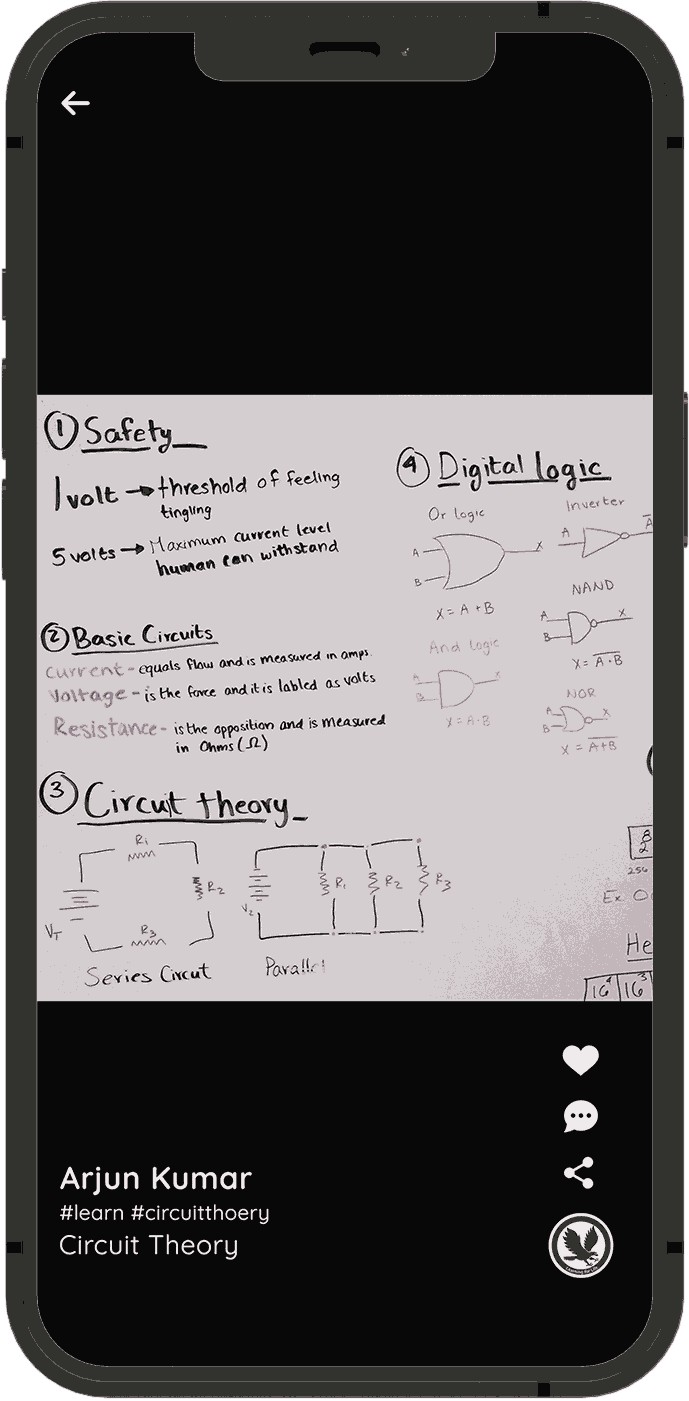 ① Safety
1 volt → threshold of feeling
tingling
5 volts → Maximum current level
human can withstand
② Basic Circuits
Current - equals flow and is measured in amps.
Voltage - is the force and it is labled as volts
Resistance - is the opposition and is measured
in Ohms (Ω)
③ Circuit theory
R₁
R₂
R₃
V_T
Series Circut
V_2
R₁
R₂
R₃
Parallel
④ Digital logic
Or logic
A
B
X
X = A + B
Inverter
A
A̅
NAND
A
B
X
X = A̅·̅B̅
And Logic
A
B
X
X = A·B
NOR
A
B
X
X = A̅+̅B̅
8
2
256
Ex
He
16⁴ 16³
Arjun Kumar
#learn #circuitthoery
Circuit Theory